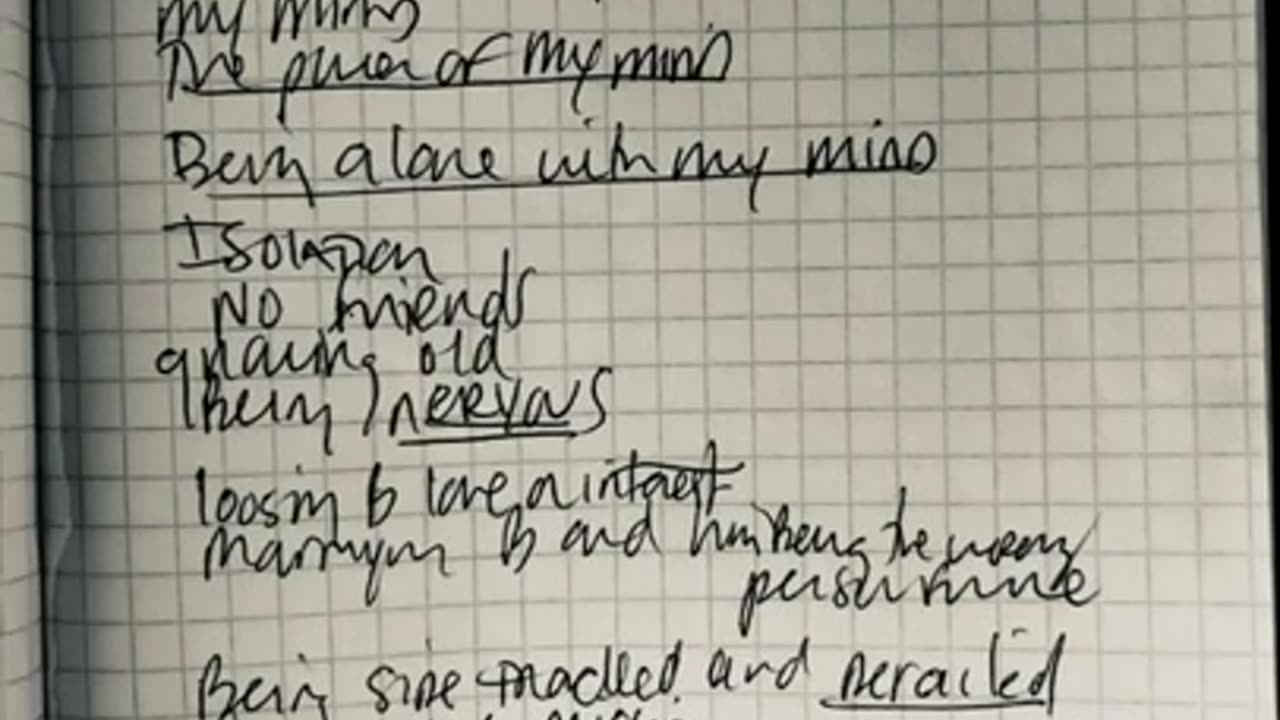 my mind
The power of my mind
Being alone with my mind
Isolation
No friends
growing old
(Being) nervous
loosing B love a interest
Marrying B and him being the wrong
person for me
Being side tracked and derailed